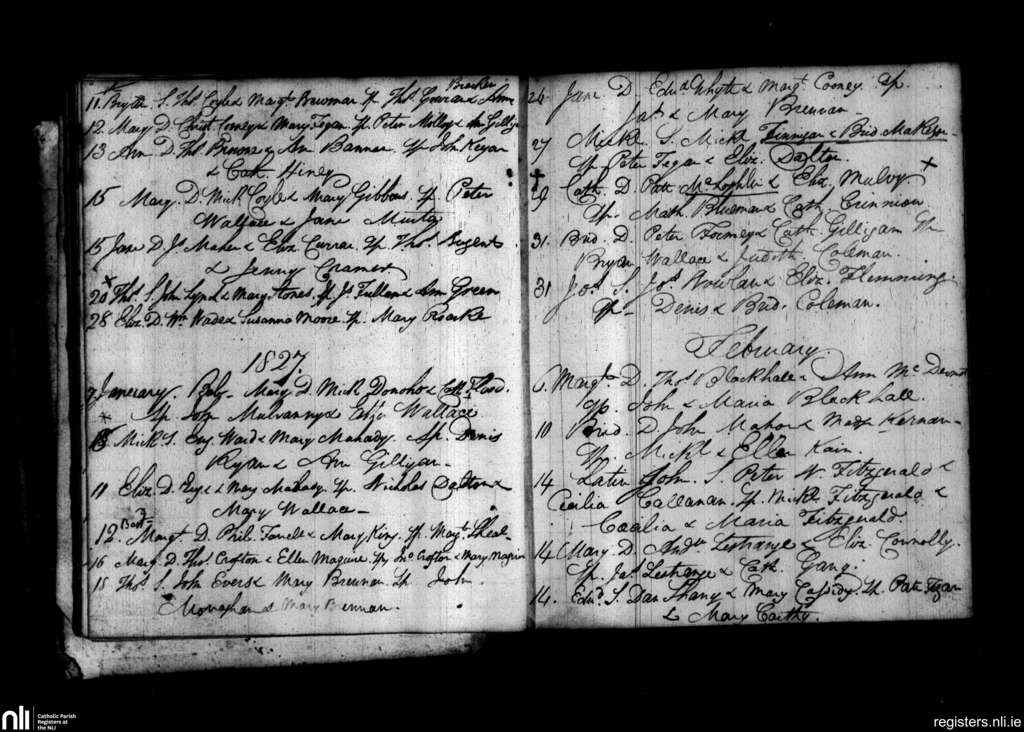 Bracken
11. Bryan S. Thos Coyle & Margt Brennan Sp. Thos & Ann
12 Mary D. Christ Cooney & Mary Fegan Sp. Peter Molloy & Ann Gilligan
13 Ann D. Thos Browne & Ann Bannon Sp. John Keyan
& Cath. Hiney
15 Mary. D. Mick Coyle & Mary Gibbons. Sp. Peter
Wallace & Jane Murtagh
15 Jane D. Js. Maher & Eliz Curran. Sp. Thos. Nugent
& Jenny Cramer
20 Thos. S. John Lynch & Mary Jones. Sp. Js. Fullam & Ann Green
28 Eliz. D. Wm Wade & Susanna Moore Sp. Mary Roarke
1827.
7 January. Bdg. Mary D. Mick Donohoe & Cath Flood.
Sp. John Mulvanny & Wallace
Mick S. Eug. Ward & Mary Mahady. Sp. Denis
Ryan & Ann Gilligan.
11 Eliz. D. & Mary Mahady. Sp. Nicholas Dalton &
Mary Wallace
12. Margt D. Phil. Farrell & Mary King. Sp. Margt
16 Mary D. Thos. Crofton & Ellen Maguire Sp. Jno Crofton & Mary
18 Thos. S. John Evers & Mary Brennan. Sp. John
Monaghan & Mary Brennan.
26 Jane D. Edwd Whyte & Margt Cooney. Sp.
Jas & Mary Brennan
27 Mickl S. Mickl Finnegan & Brid
Sp. Peter Fegan & Eliz. Dalton.
29 Cath. D. Patt McLoghlin & Eliz. Mulvy.
Sp. Math. & Cath. Crennion.
31. Brid. D. Peter & Cath. Gilligan Sp.
Bryan Wallace & Judith Coleman.
31 Jos S. Jos. Nowlan & Eliz. Flemming.
Sp. Denis & Brid. Coleman.
February.
6. Margt D. Thos Blackhall & Ann McDermott
Sp. John & Maria Blackhall.
10 Brid. D. John Mahon & Mary Kernan
Sp. Mickl & Ellen Kain.
14 John. S. Peter N. Fitzgerald &
Cecilia Callanan. Sp. Mickl Fitzgerald &
Cecilia & Maria Fitzgerald.
14 Mary. D. Andw Lestrange & Eliz. Connolly.
Sp. Jas. Lestrange & Cath. Gang.
14. Edwd S. Dan Shang & Mary Cassidy. Sp. Patt Fegan
& Mary Carthy.
nli
Catholic Parish
Registers at
the NLI
registers.nli.ie